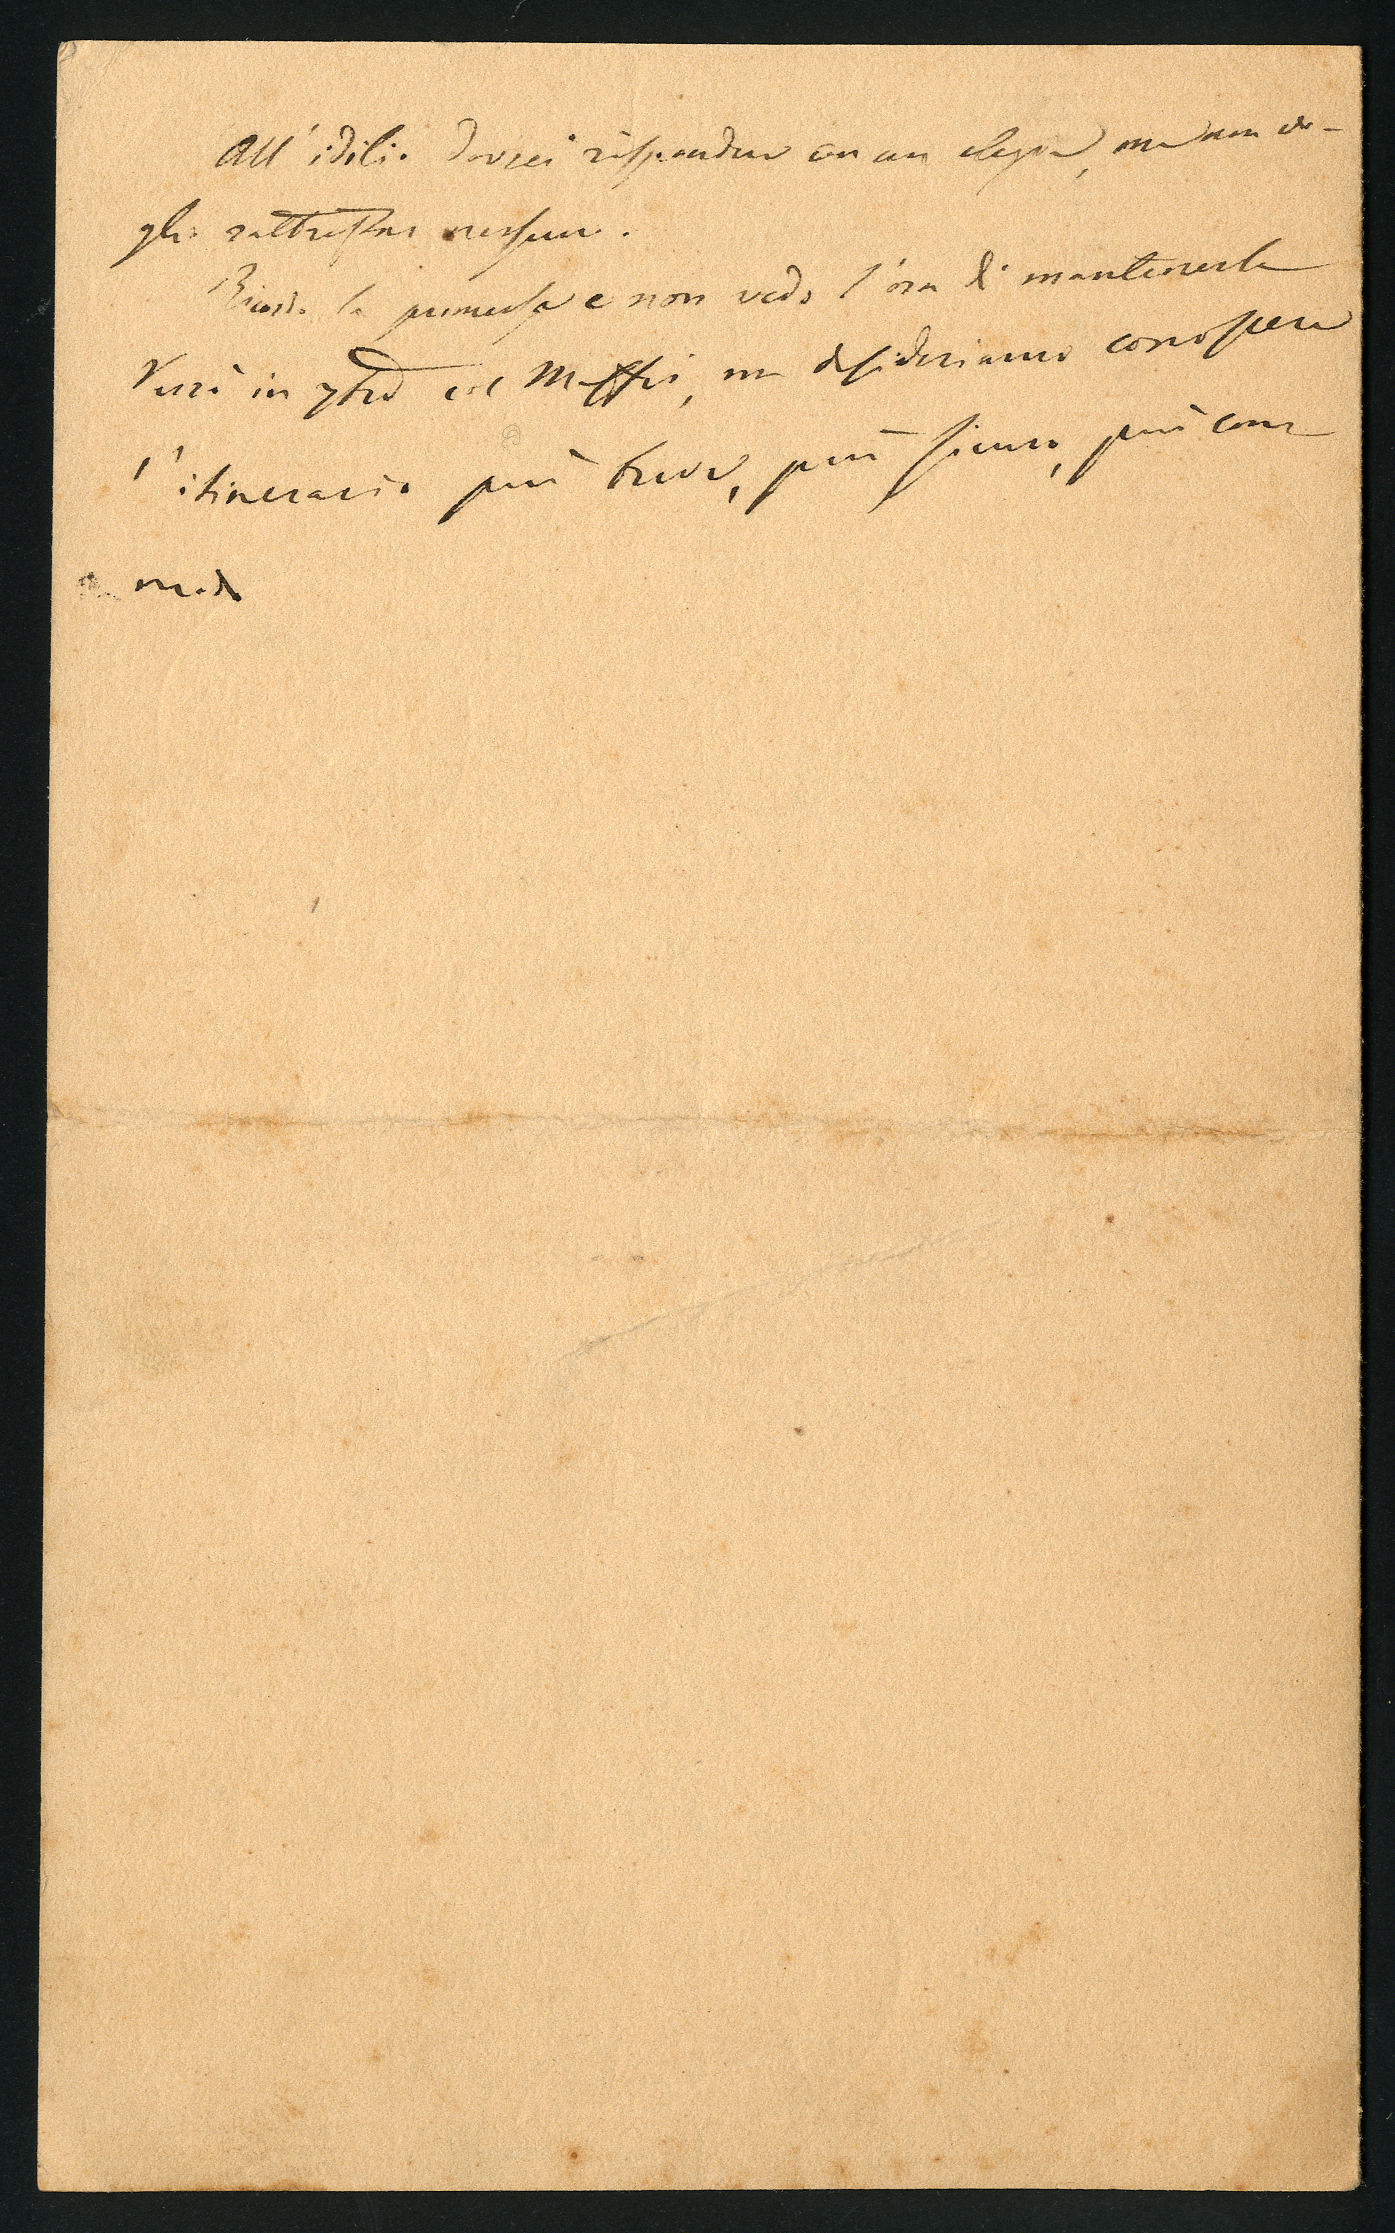 All'idilio dovrei rispondere con un elegia, ma non vo-
glio rattristar nessuno.
Ricordo la promessa e non vedo l'ora di mantenerla
Verrò in 7bre col Maffei, ma desideriamo conoscere
l'itinerario più breve, più sicuro, più com
modo